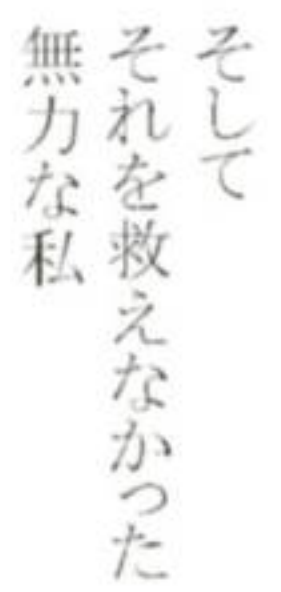 そして
それを救えなかった
無力な私